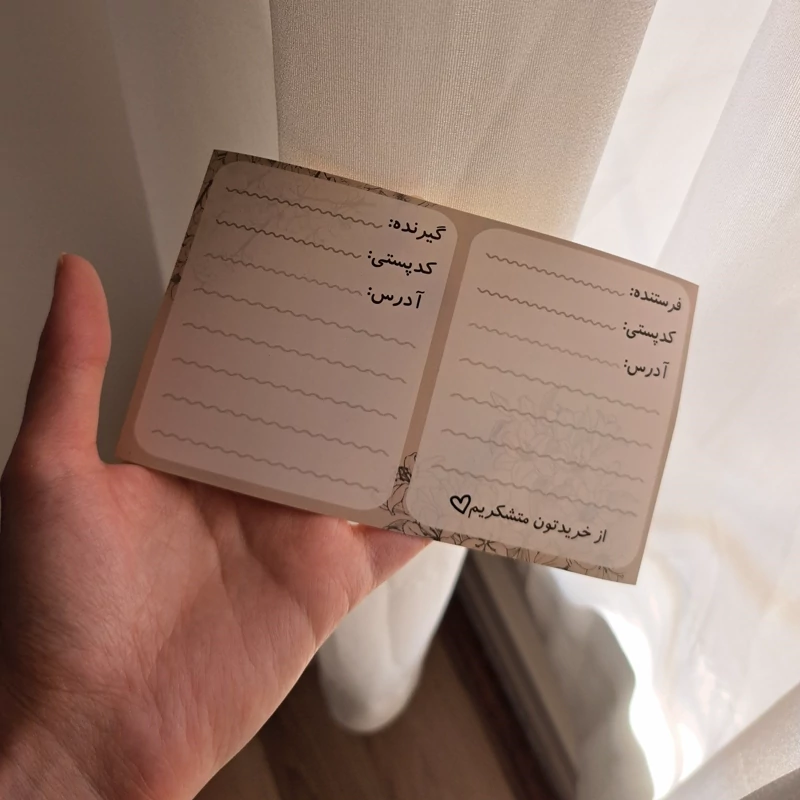 فرستنده:
کدپستی:
آدرس:
از خریدتون متشکریم♡
گیرنده:
کدپستی:
آدرس: